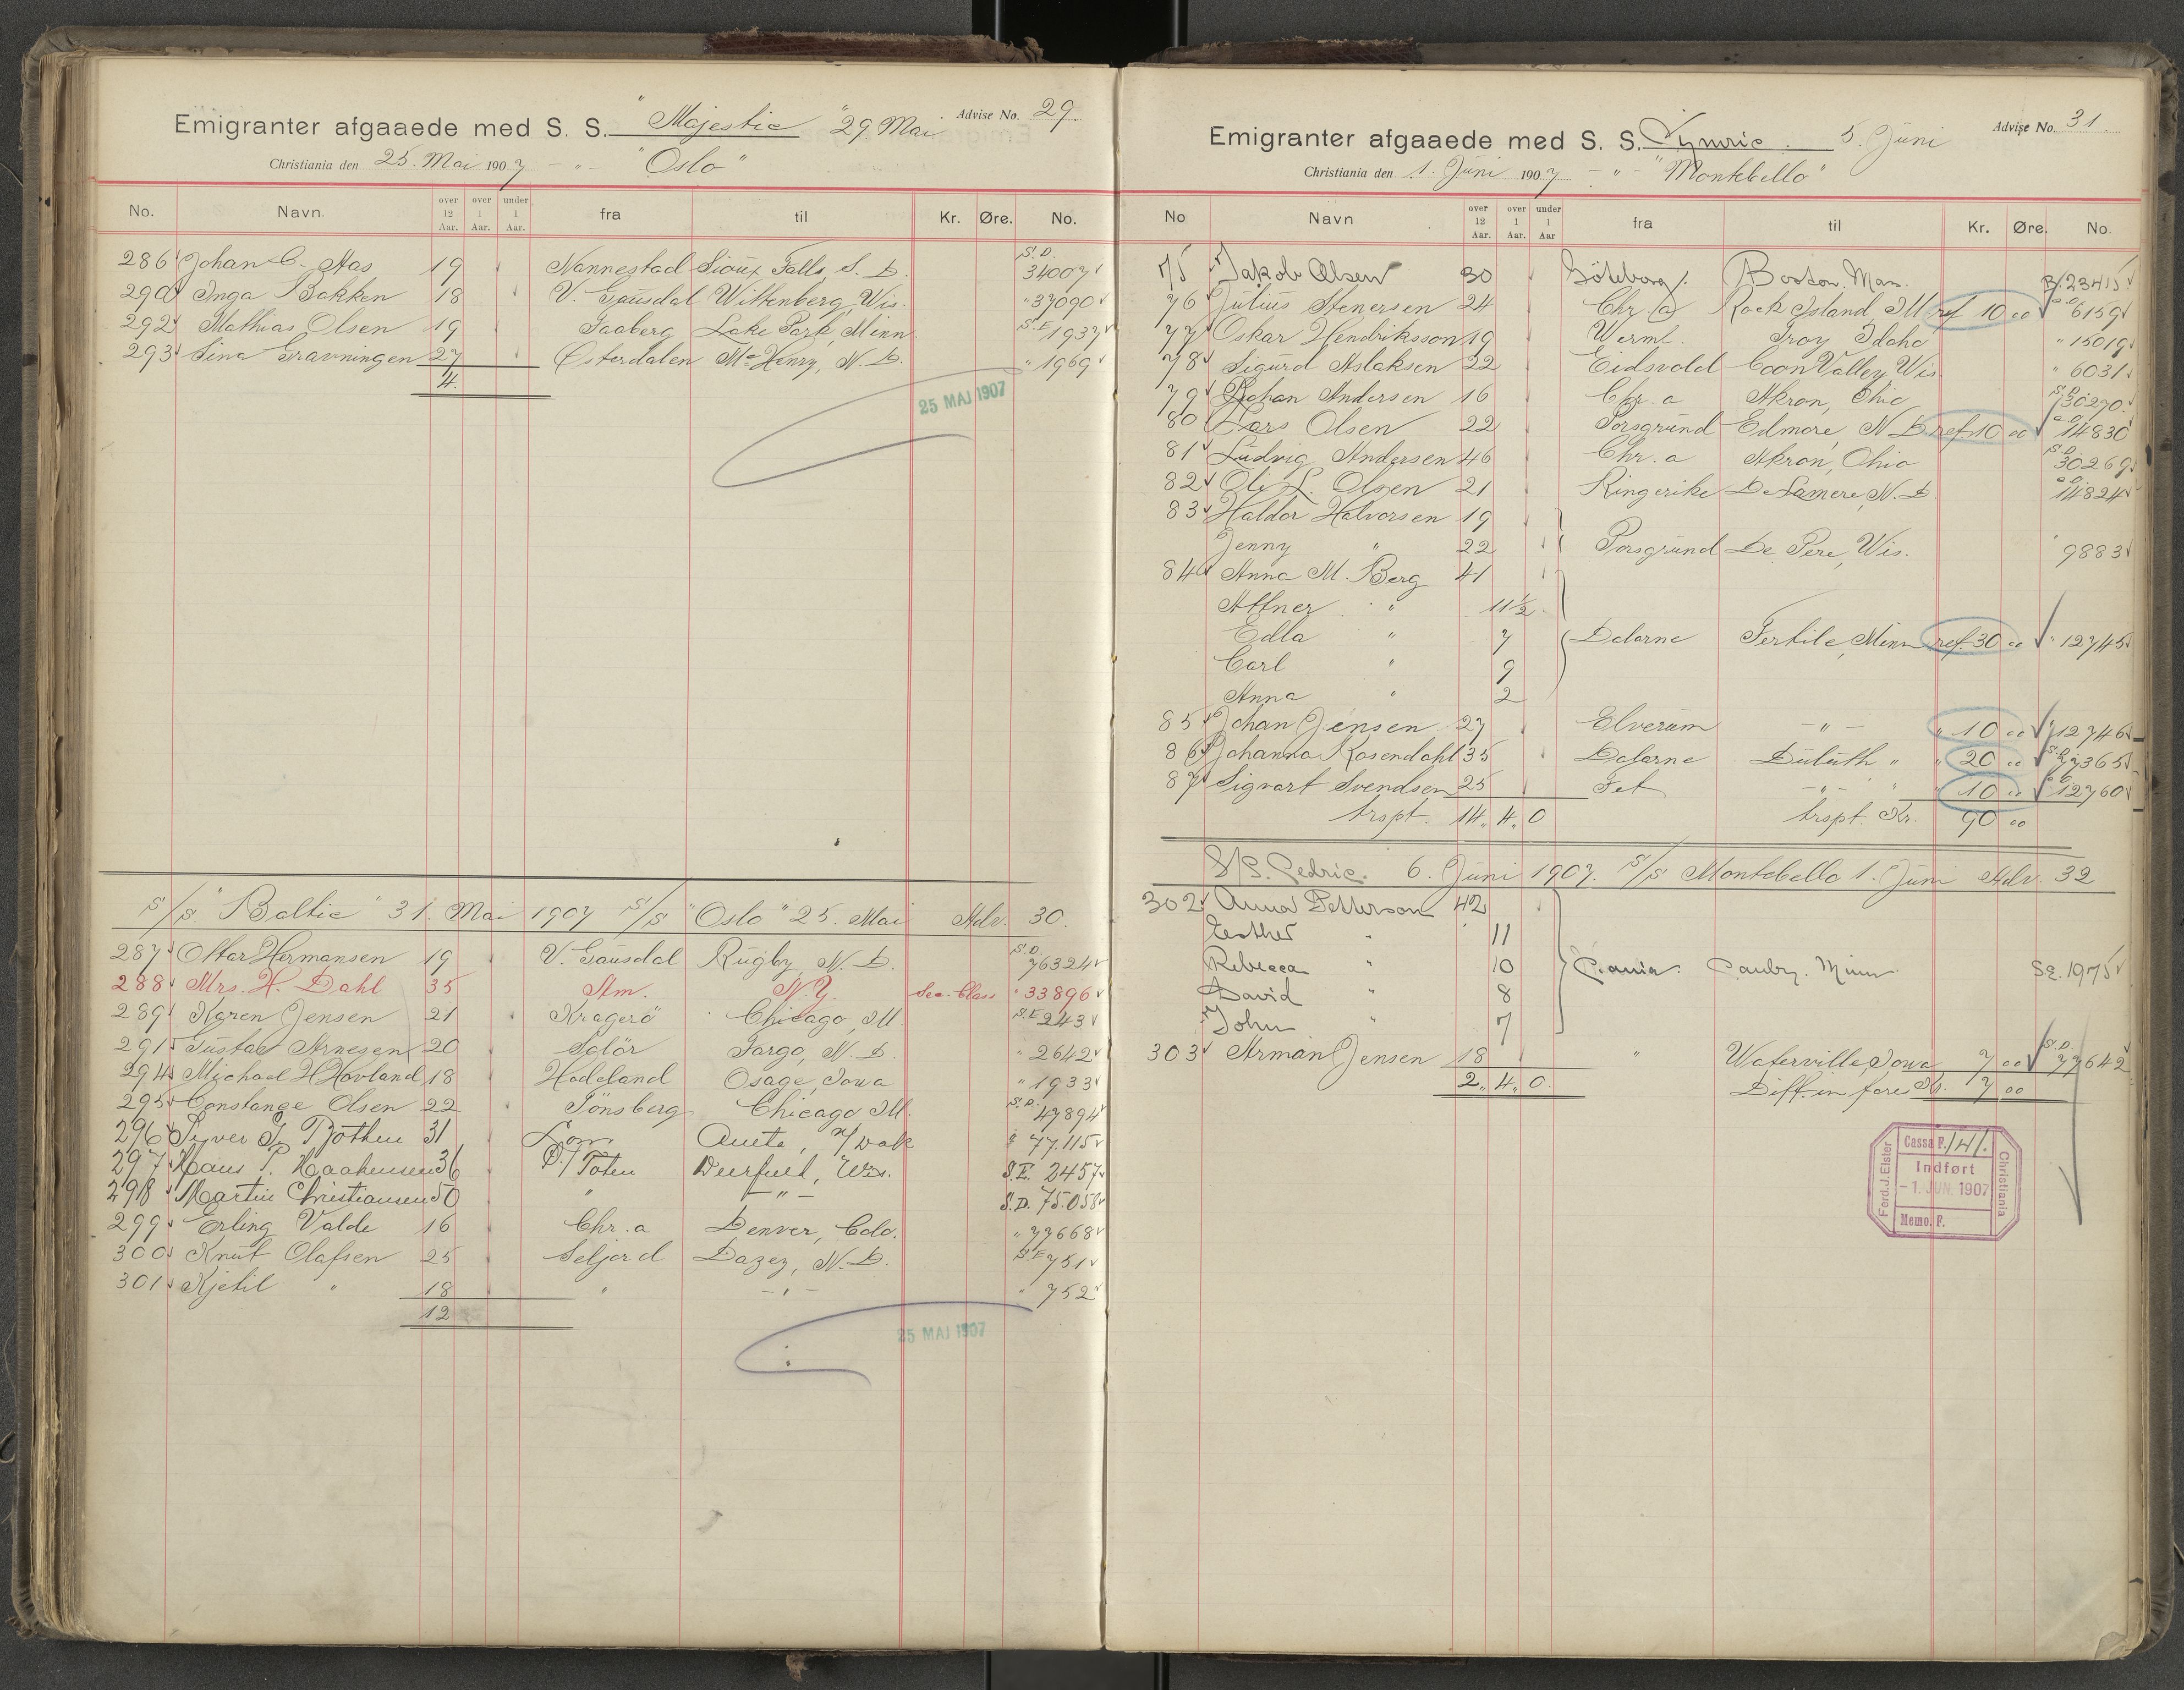 Emigranter afgaaede med S. S. "Majestic" 29. Mai Advise No. 29.
Christiania den 25. Mai 1907 - " - "Oslo"
No. Navn. over 12 Aar. over 1 Aar. under 1 Aar. fra til Kr. Øre. No.
286 Johan C. Aas 19 Nannestad Sioux Falls, S. D. S.D. 34007
290 Inga Bakken 18 V. Gausdal Wittenberg, Wis. " 37090
292 Mathias Olsen 19 Faaberg Lake Park, Minn. S.E. 1937
293 Sina Gravningen 27 Østerdalen McHenry, N. D. " 1969
4.
25 MAJ 1907
S/S. "Baltic" 31. Mai 1907 S/S "Oslo" 25. Mai Adv. 30.
287 Ottar Hermansen 19 V. Gausdal Rugby, N. D. S.D. 76324
288 Mrs. H. Dahl 35 Am. N.Y. Sec. Class " 33896
289 Karen Jensen 21 Kragerö Chicago, Ill. S.E 243
291 Gustav Arnesen 20 Solör Fargo, N. D. " 2642
294 Michael H Hovland 18 Hadeland Osage, Iowa " 1933
295 Constance Olsen 22 Tönsberg Chicago Ill. S.D. 47894
296 Syver 31 Lom Aneta, N/Dak " 77.115
297 Hans P. Haakensen 36 Ø/Toten Deerfield, Wis. S.E. 2457
298 Martin Christiansen 50 " - " - S.D. 75.058
299 Erling Valde 16 Chr.a Denver, Colo. " 77668
300 Knut Olafsen 25 Seljord Dazey, N. D. S.E 751
301 Kjetil " 18 " - " - " 752
12
25 MAJ 1907
Emigranter afgaaede med S. S. Cymric. 5. Juni Advise No. 31.
Christiania den 1. Juni 1907 - " - "Montebello"
No Navn over 12 Aar. over 1 Aar. under 1 Aar fra til Kr. Øre. No.
75 Jakob Olsen 30 Göteborg Boston. Mass. 23415
76 Julius Stenersen 24 Chr.a Rock Island, Ill ref 10 00 6159
77 Oskar Hendriksson 19 Werml. Troy Idaho " 15019
78 Sigurd Aslaksen 22 Eidsvold Coon Valley Wis " 6031
79 Johan Andersen 16 Chr.a Akron, Ohio S.D. 30270
80 Lars Olsen 22 Porsgrund Edmore, N. D. ref 10 00 14830
81 Ludvig Andersen 46 Chr.a Akron, Ohio S.D. 30269
82 Ole L. Olsen 21 Ringerike DeLamere, N. D. 14824
83 Haldor Halvorsen 19
Jenny " 22 Porsgrund De Pere, Wis. " 9883
84 Anna M. Berg 41
" 11½
Edla " 7 Dalarne Fertile, Minn ref. 30 00 " 12745
Carl " 9
Anna " 2
85 Johan Jensen 27 Elverum - " - " 10 00 12746
86 Johanna Rosendahl 35 Dalarne Duluth " " 20 00 S.D. 77365
87 Sigvart Svendsen 25 Fet - " - " 10 00 12760
trspt. 14 " 4 " 0 trspt. Kr. 90 00
S/S. Cedric. 6. Juni 1907. S/S Montebello 1. Juni Adv. 32
302 Anna Petterson 42
Esther " 11
Rebecca " 10 Canby. Minn. S.E. 1975
David " 8
John " 7
303 Arman Jensen 18 " Waterville, Iowa 7 00 S.D. 77642
2 " 4 " 0. Diff. in fare Kr. 7 00
Ferd. J. Elster Christiania
Cassa F. 141.
Indført
- 1. JUN. 1907
Memo. F.